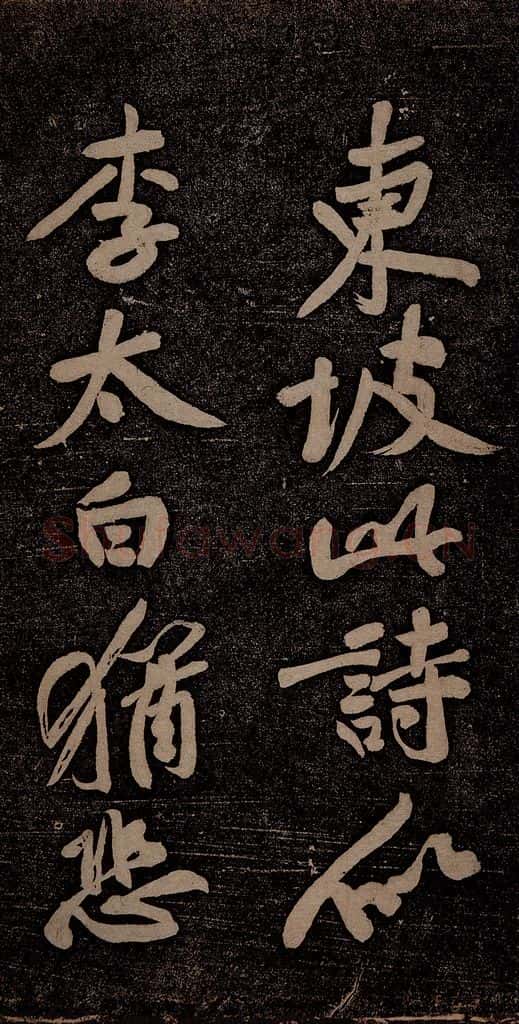 東坡此詩似
李太白猶恐
Shufawang.CN